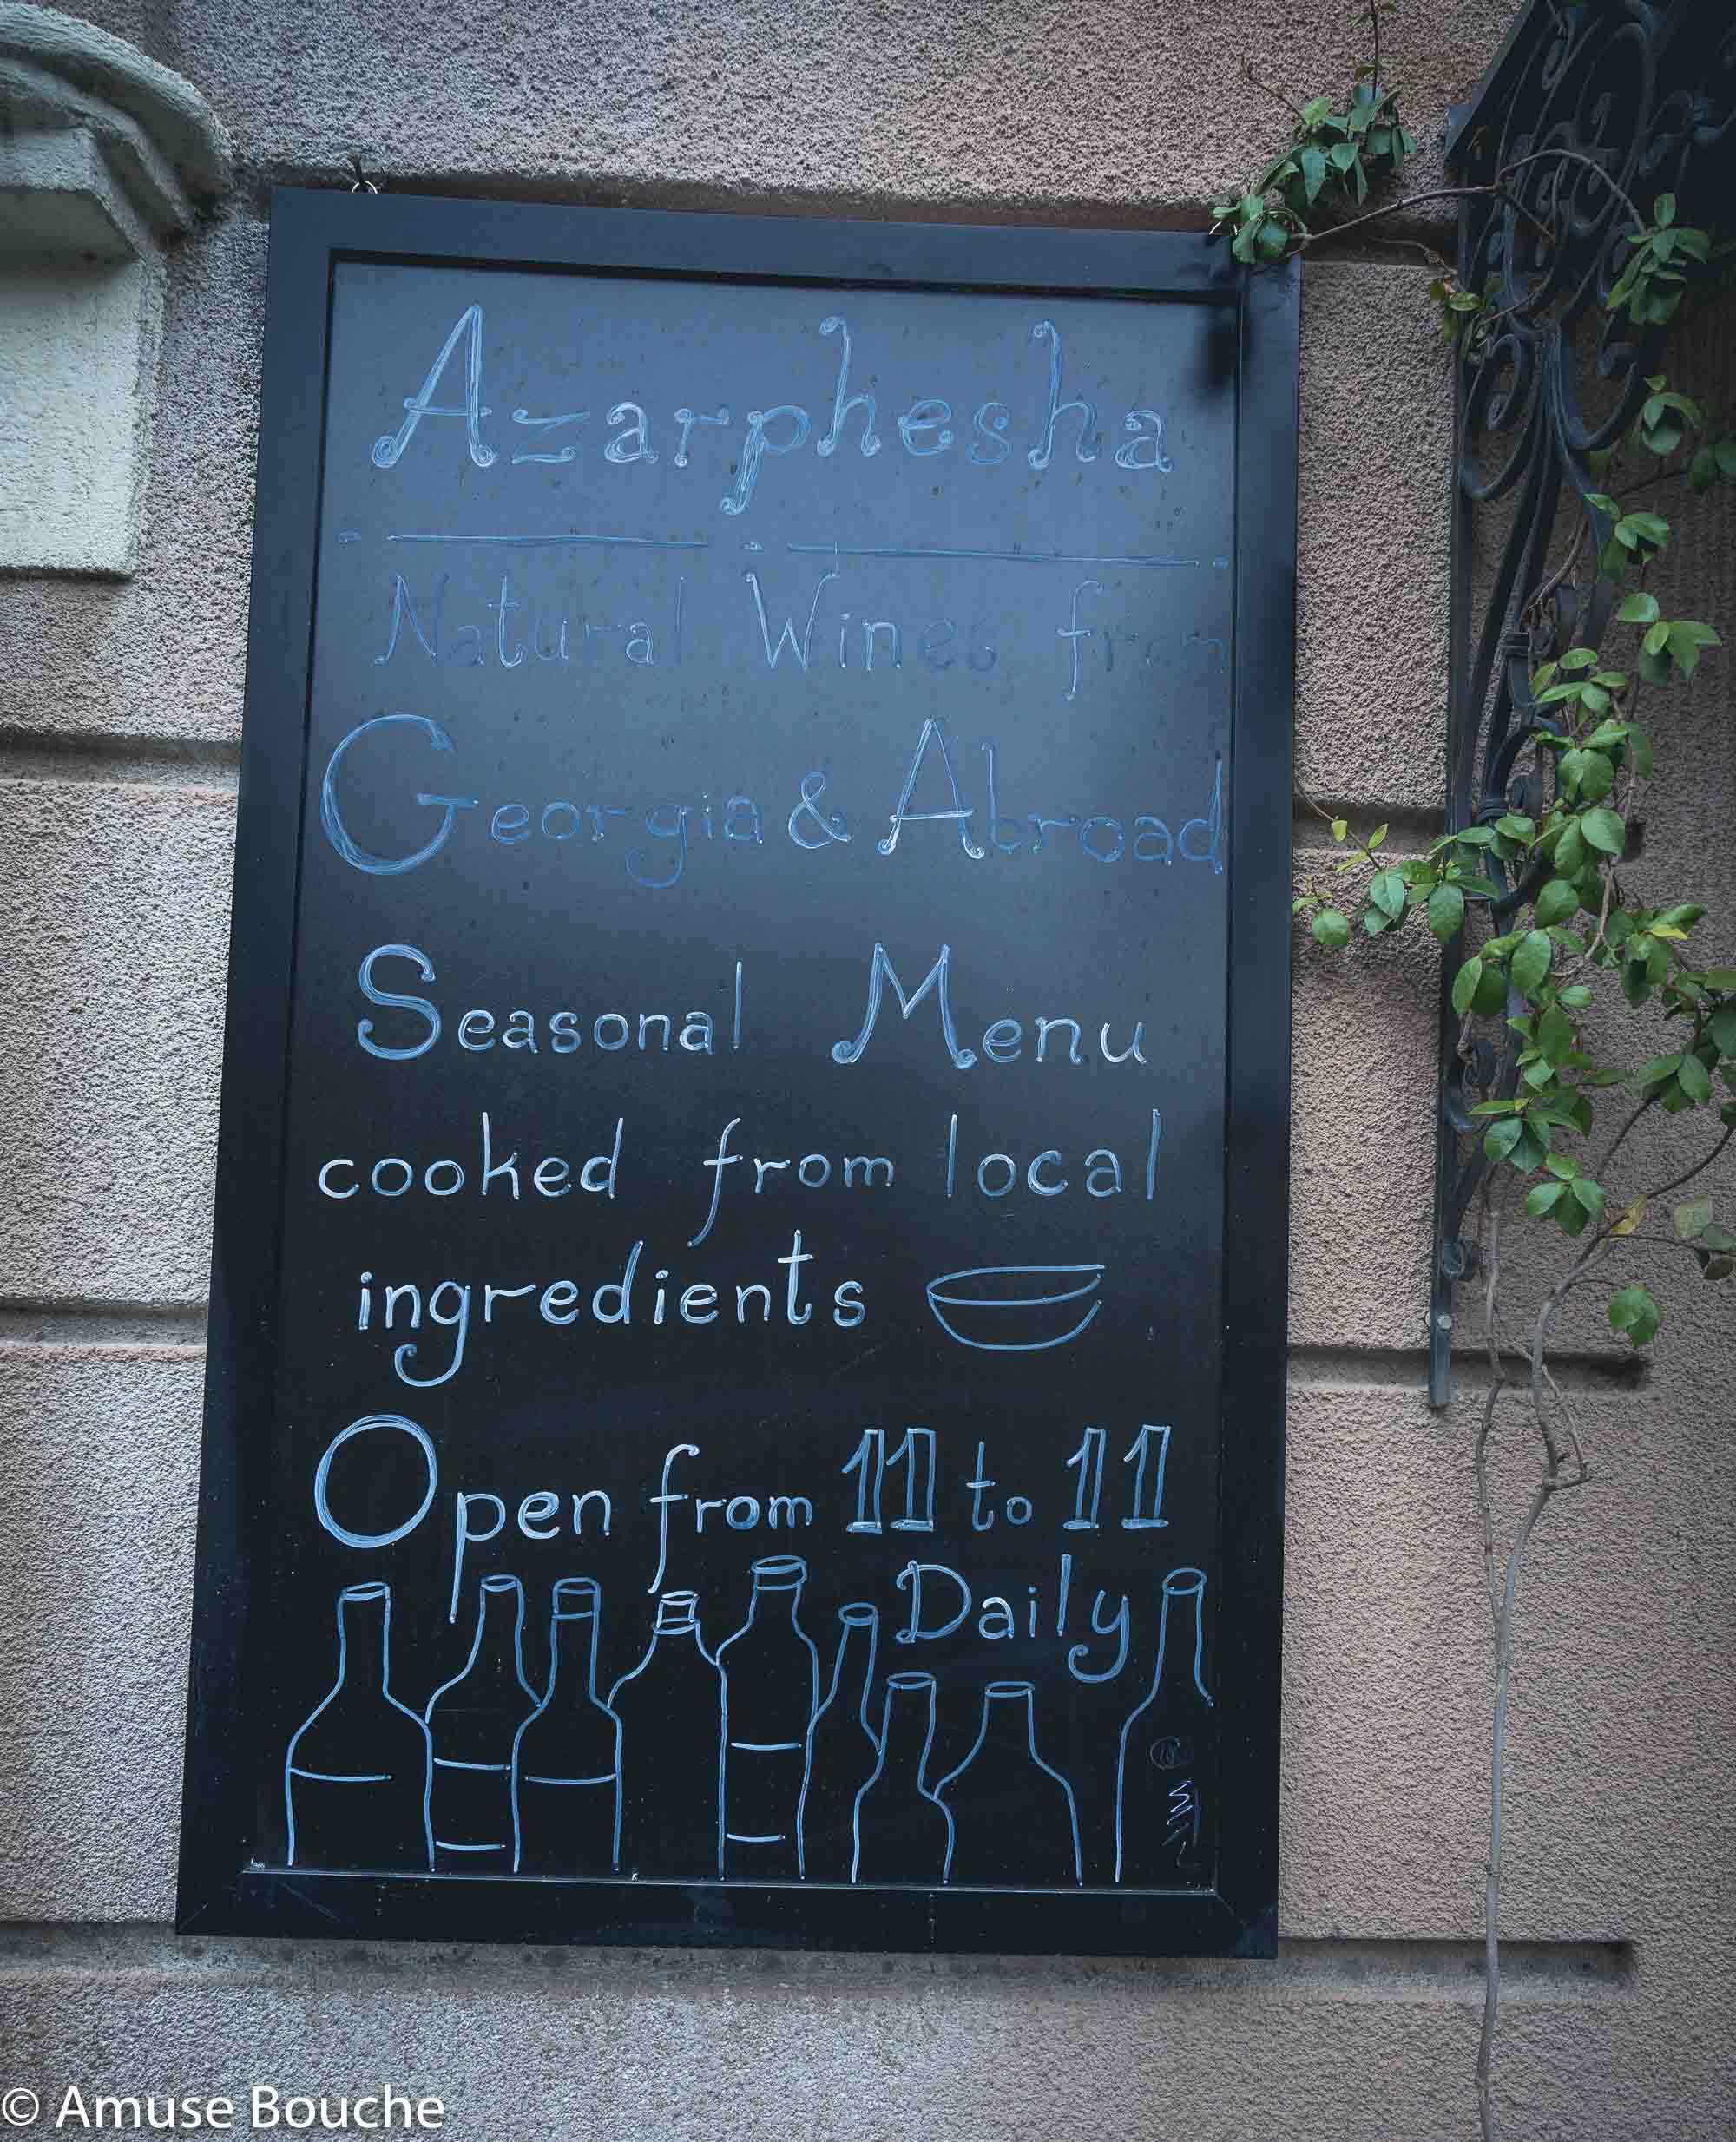 Azarphesha
Natural Wines from
Georgia & Abroad
Seasonal Menu
cooked from local
ingredients
Open from 11 to 11
Daily
© Amuse Bouche